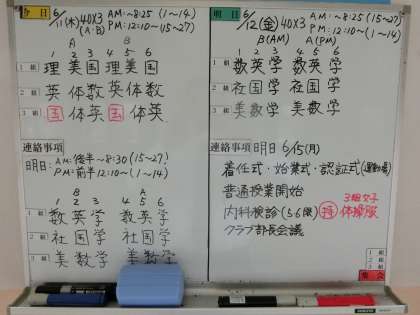 今日 6/11(木) 40×3 (A・B) AM:~8:25 (1~14)
PM:12:10~(15~27)
A B
1 2 3 4 5 6
1組 理美国 理美国
2組 英体数 英体数
3組 国体英 国体英
連絡事項
明日: AM:後半~8:30(15~27)
PM:前半12:10~(1~14)
B A
1 2 3 4 5 6
1組 数英学 数英学
2組 社国学 社国学
3組 美数学 美数学
明日 6/12(金) 40×3 AM:~8:25(15~27)
PM:12:10~(1~14)
B(AM) A(PM)
1 2 3 4 5 6
1組 数英学 数英学
2組 社国学 社国学
3組 美数学 美数学
連絡事項 明日 6/15(月)
着任式・始業式・認証式(運動場)
普通授業開始
内科検診(5.6限) 持 3組女子 体操服
クラブ部長会議
1組
2組
3組
集会